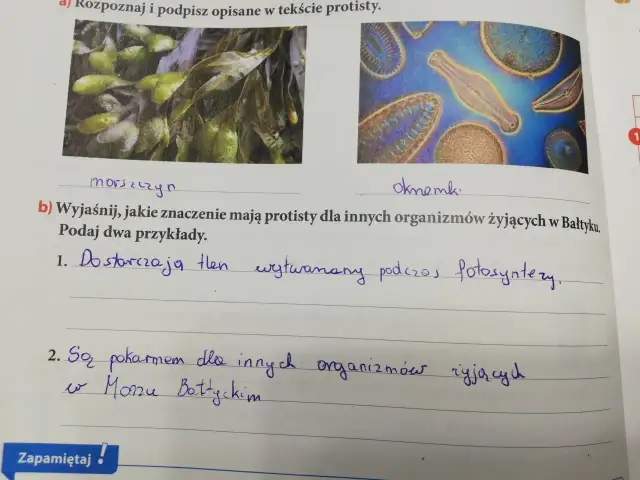 a) Rozpoznaj i podpisz opisane w tekście protisty.
morszczyn
okrzemki
b) Wyjaśnij, jakie znaczenie mają protisty dla innych organizmów żyjących w Bałtyku.
Podaj dwa przykłady.
1. Dostarczają tlen wytwarzany podczas fotosyntezy.
2. Są pokarmem dla innych organizmów żyjących
w Morzu Bałtyckim
Zapamiętaj!
1